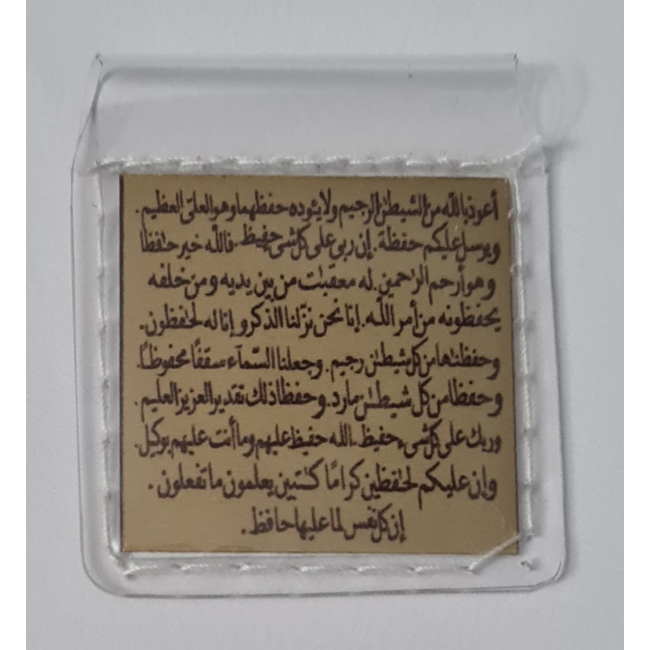 أعوذ بالله من الشيطٰن الرجيم ولا يئوده حفظهما وهو العلى العظيم .
ويرسل عليكم حفظة . إن ربى على كل شىء حفيظ . فالله خير حٰفظا
وهو أرحم الرٰحمين . له معقبٰت من بين يديه ومن خلفه
يحفظونه من أمر الله . إنا نحن نزّلنا الذكر و إنا له لحٰفظون .
وحفظنٰها من كل شيطٰن رجيم . وجعلنا السّمآء سقفًا محفوظًا .
وحفظا من كل شيطٰن مارد . وحفظا ذلك تقدير العزيز العليم .
وربك على كل شىء حفيظ . الله حفيظ عليهم وما أنت عليهم بوكيل .
وإن عليكم لحٰفظين كرامًا كٰتبين يعلمون ما تفعلون .
إن كل نفس لما عليها حافظ .